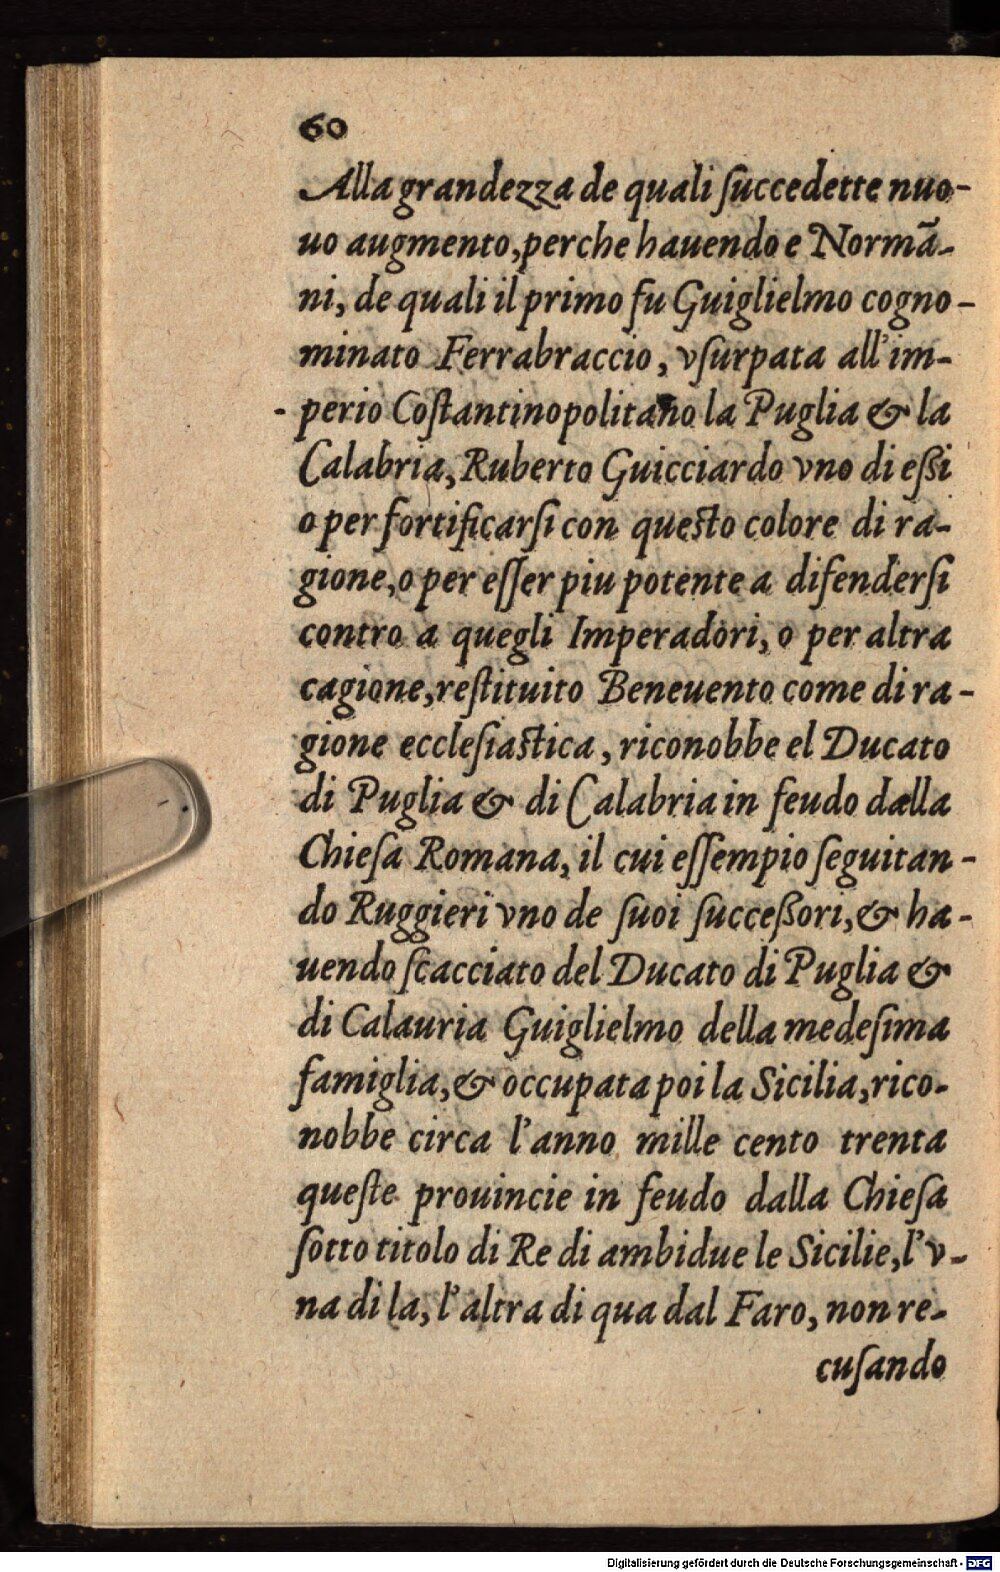 60
Alla grandezza de quali ſuccedette nuo-
uo augmento, perche hauendo e Normã-
ni, de quali il primo fu Guiglielmo cogno-
minato Ferrabraccio, vſurpata all'im-
perio Coſtantinopolitano la Puglia & la
Calabria, Ruberto Guicciardo vno di eſſi
o per fortificarſi con queſto colore di ra-
gione, o per eſſer piu potente a difenderſi
contro a quegli Imperadori, o per altra
cagione, reſtituito Beneuento come di ra-
gione eccleſiaſtica, riconobbe el Ducato
di Puglia & di Calabria in feudo dalla
Chieſa Romana, il cui eſſempio ſeguitan-
do Ruggieri vno de ſuoi ſucceſſori, & ha-
uendo ſcacciato del Ducato di Puglia &
di Calauria Guiglielmo della medeſima
famiglia, & occupata poi la Sicilia, rico-
nobbe circa l'anno mille cento trenta
queſte prouincie in feudo dalla Chieſa
ſotto titolo di Re di ambidue le Sicilie, l'v-
na di la, l'altra di qua dal Faro, non re-
cuſando
Digitalisierung gefördert durch die Deutsche Forschungsgemeinschaft - DFG